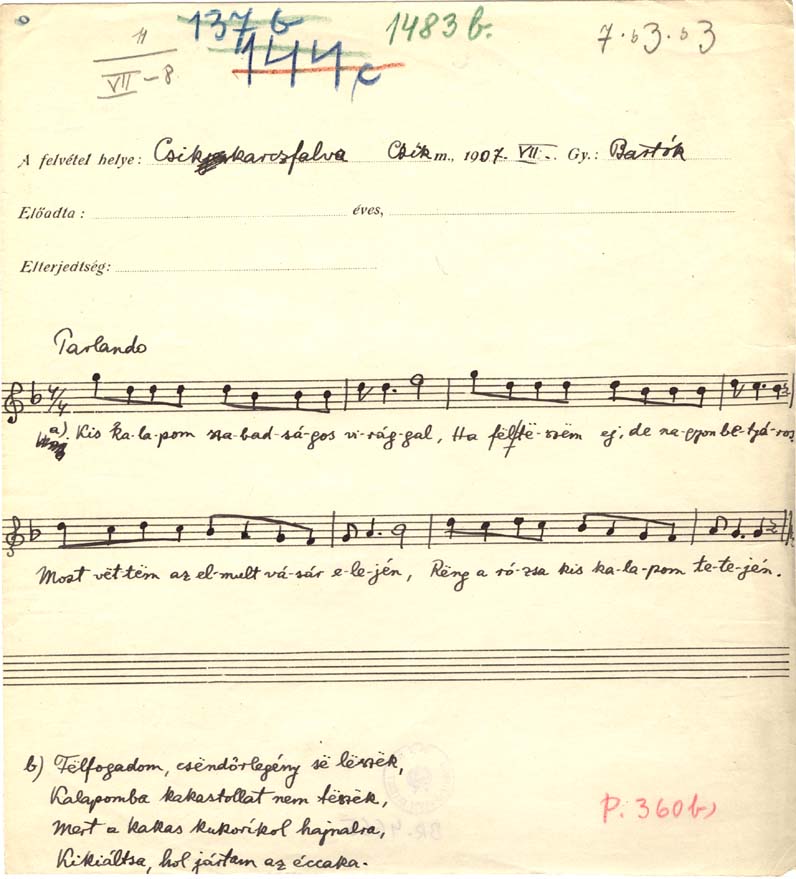 137 b 1483 b. 7.b3.b3
11
VII - 8
144 c
A felvétel helye: Csikkarczfalva Csik m., 1907. VII. Gy.: Bartók
Előadta: éves,
Elterjedtség:
Parlando
4/4
a). Kis ka-la-pom sza-bad-sá-gos vi-rág-gal, Ha fël-të-szëm ej, de na-gyon be-tyá-ros
Most vët-tëm az el-mult vá-sár e-le-jén, Rëng a ró-zsa kis ka-la-pom te-te-jén.
b) Fëlfogadom, csëndőrlegény së lëszëk,
Kalapomba kakastollat nem tëszëk,
Mert a kakas kukoríkol hajnalra,
Kikiáltsa, hol jártam az éccaka.
P. 360 b)